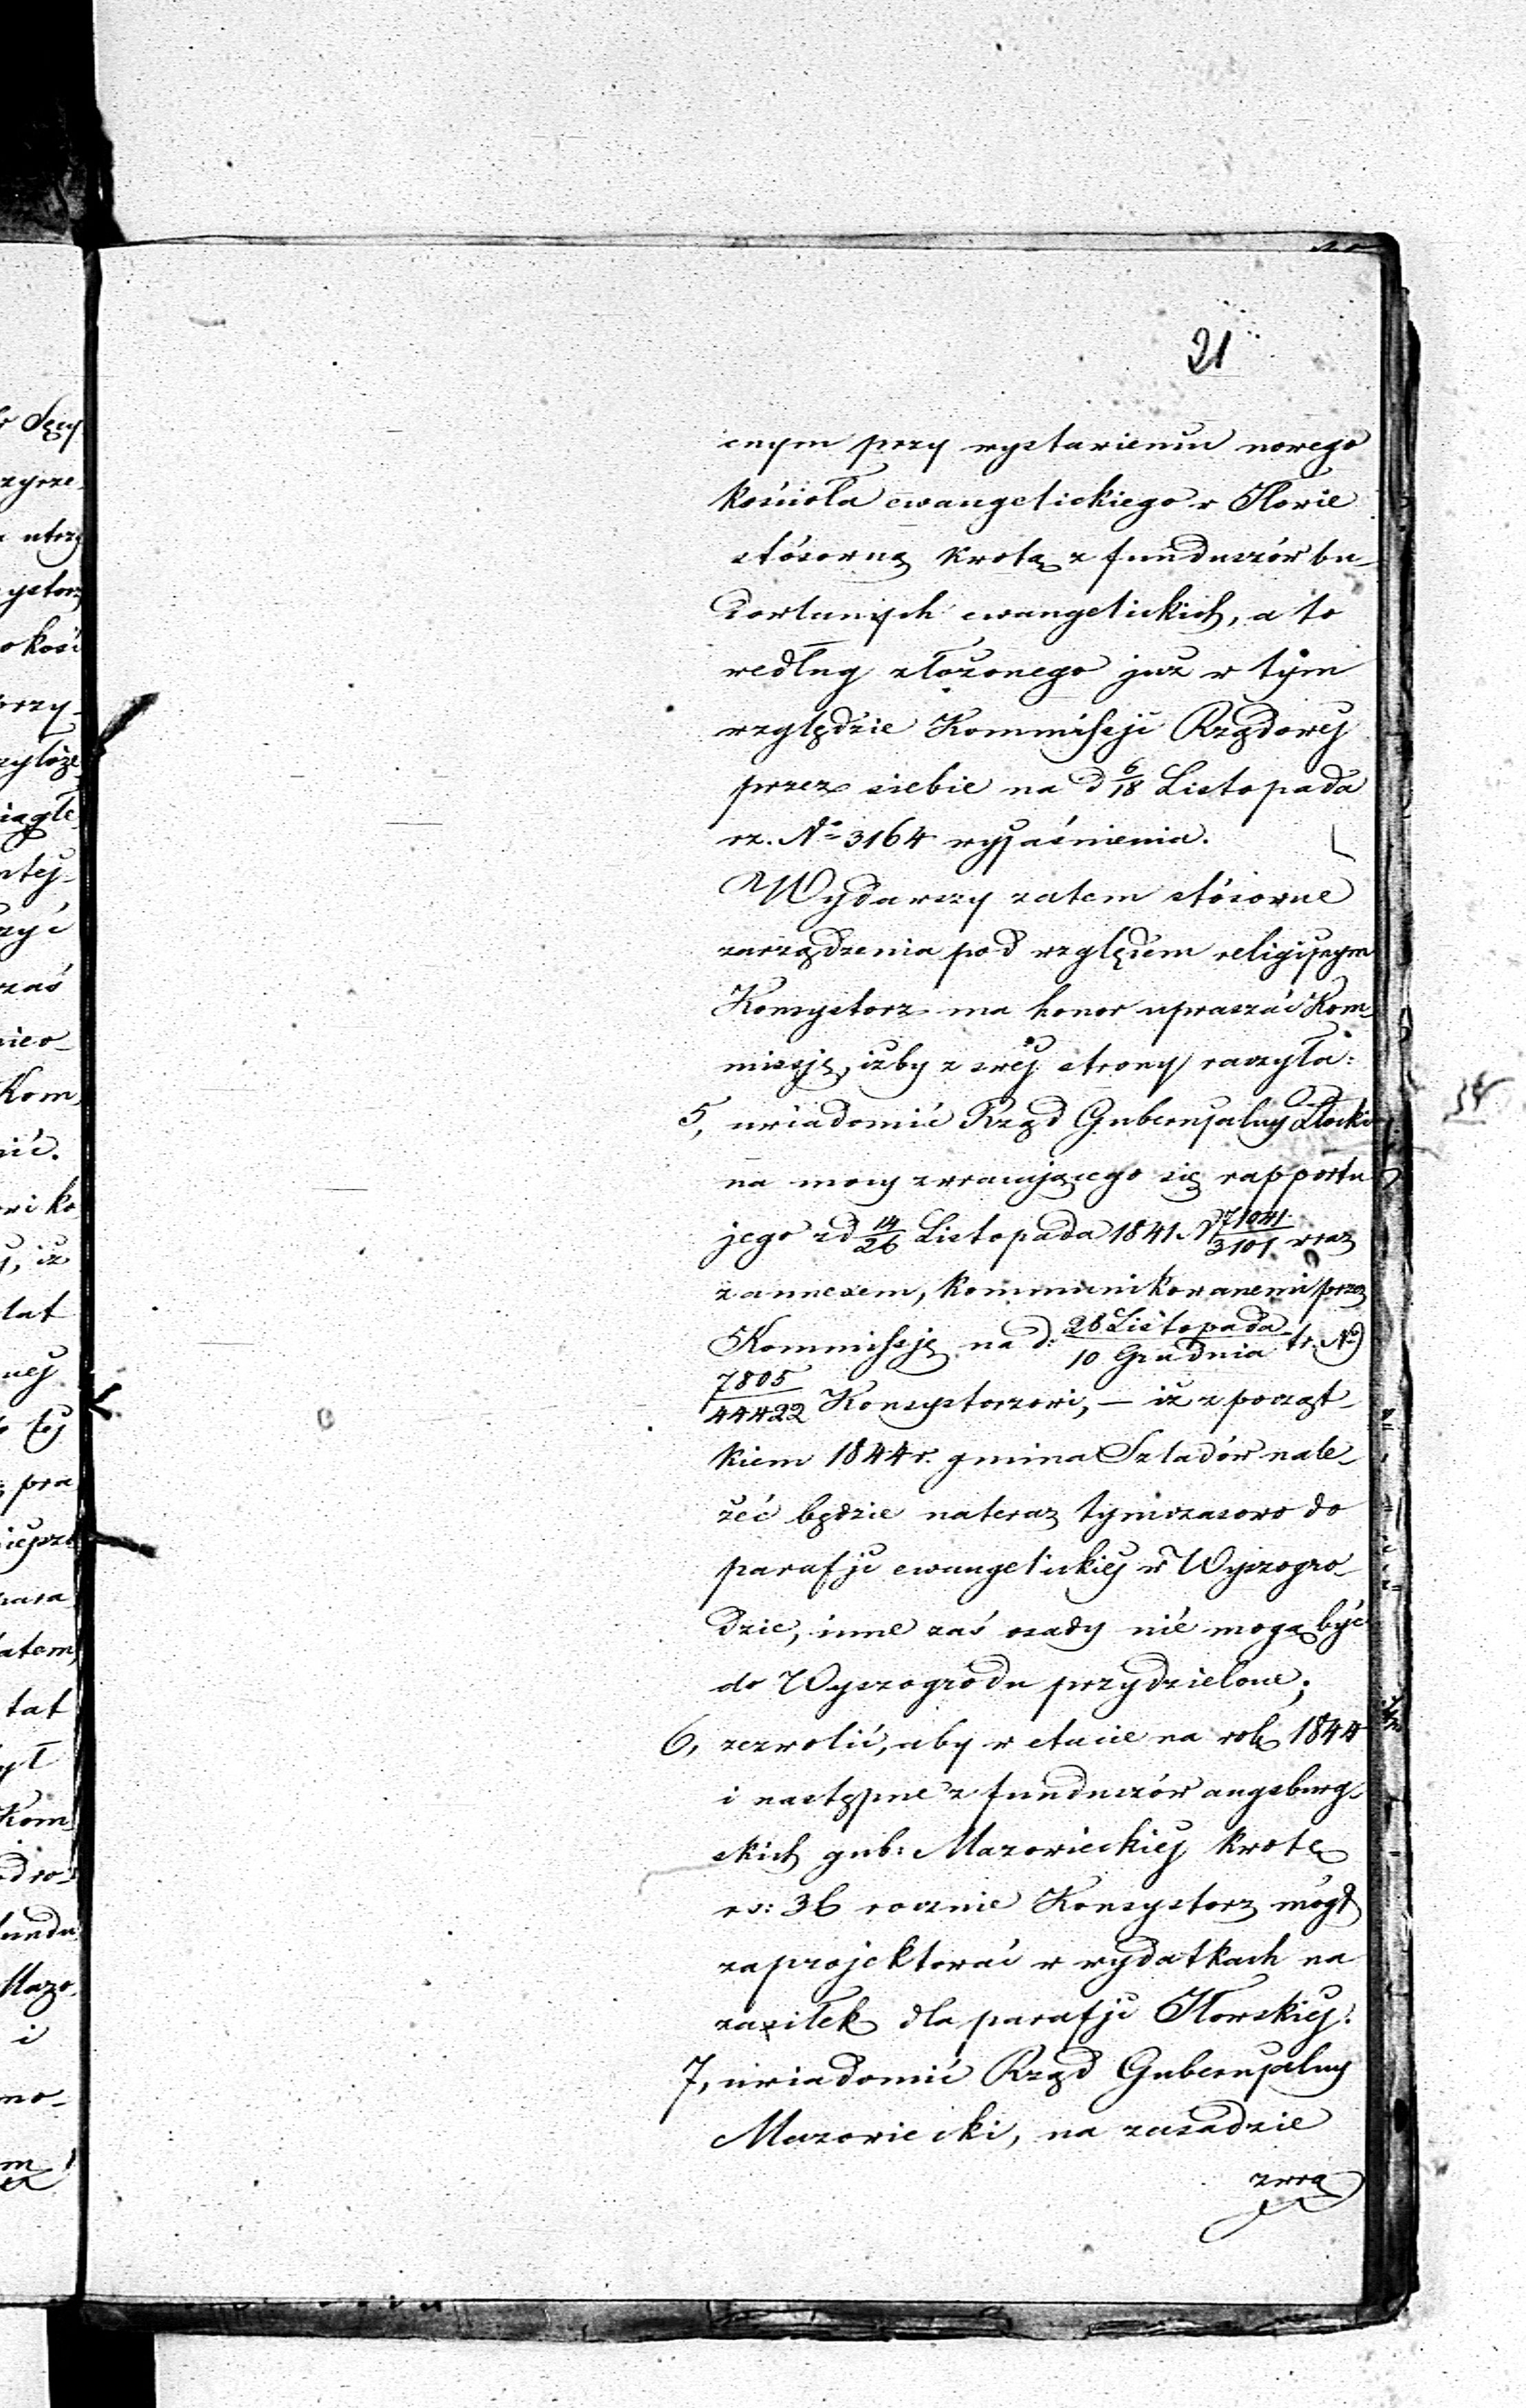 21
cnym przy wystawieniu nowego
kościoła ewangelickiego w Iłowie
stósowną kwotą z funduszów bu-
dowlanych ewangelickich, a to
według złożonego już w tym
względzie Kommissji Rządowej
przez siebie na d 6/18 Listopada
rz. No 3164 wyjaśnienia.
Wydawszy zatem stósowne
zarządzenia pod względem religijnym
Konsystorz ma honor upraszać Kom-
missję, iżby z swej strony raczyła:
5, uwiadomić Rząd Gubernjalny Płocki
na mocy zwracającego się rapportu
jego z d 14/26 Listopada 1841 N 71041/3101 wraz
z annexem, kommunikowanemi przez
Kommissję na d: 28 Listopada/10 Grudnia tr. No
7805/44422 Konsystorzowi, – iż z począt-
kiem 1844 r. gmina Szladów nale-
żeć będzie nateraz tymczasowo do
parafji ewangelickiej w Wyszogro-
dzie, inne zaś osady nie mogą być
do Wyszogrodu przydzielone;
6, zezwolić, aby w etacie na rok 1844
i następne z funduszów augsburg-
skich gub: Mazowieckiej kwotę
rs: 36 rocznie Konsystorz mógł
zaprojektować w wydatkach na
zasiłek dla parafji Iłowskiej.
7, uwiadomić Rząd Gubernjalny
Mazowiecki, na zasadzie
zwra